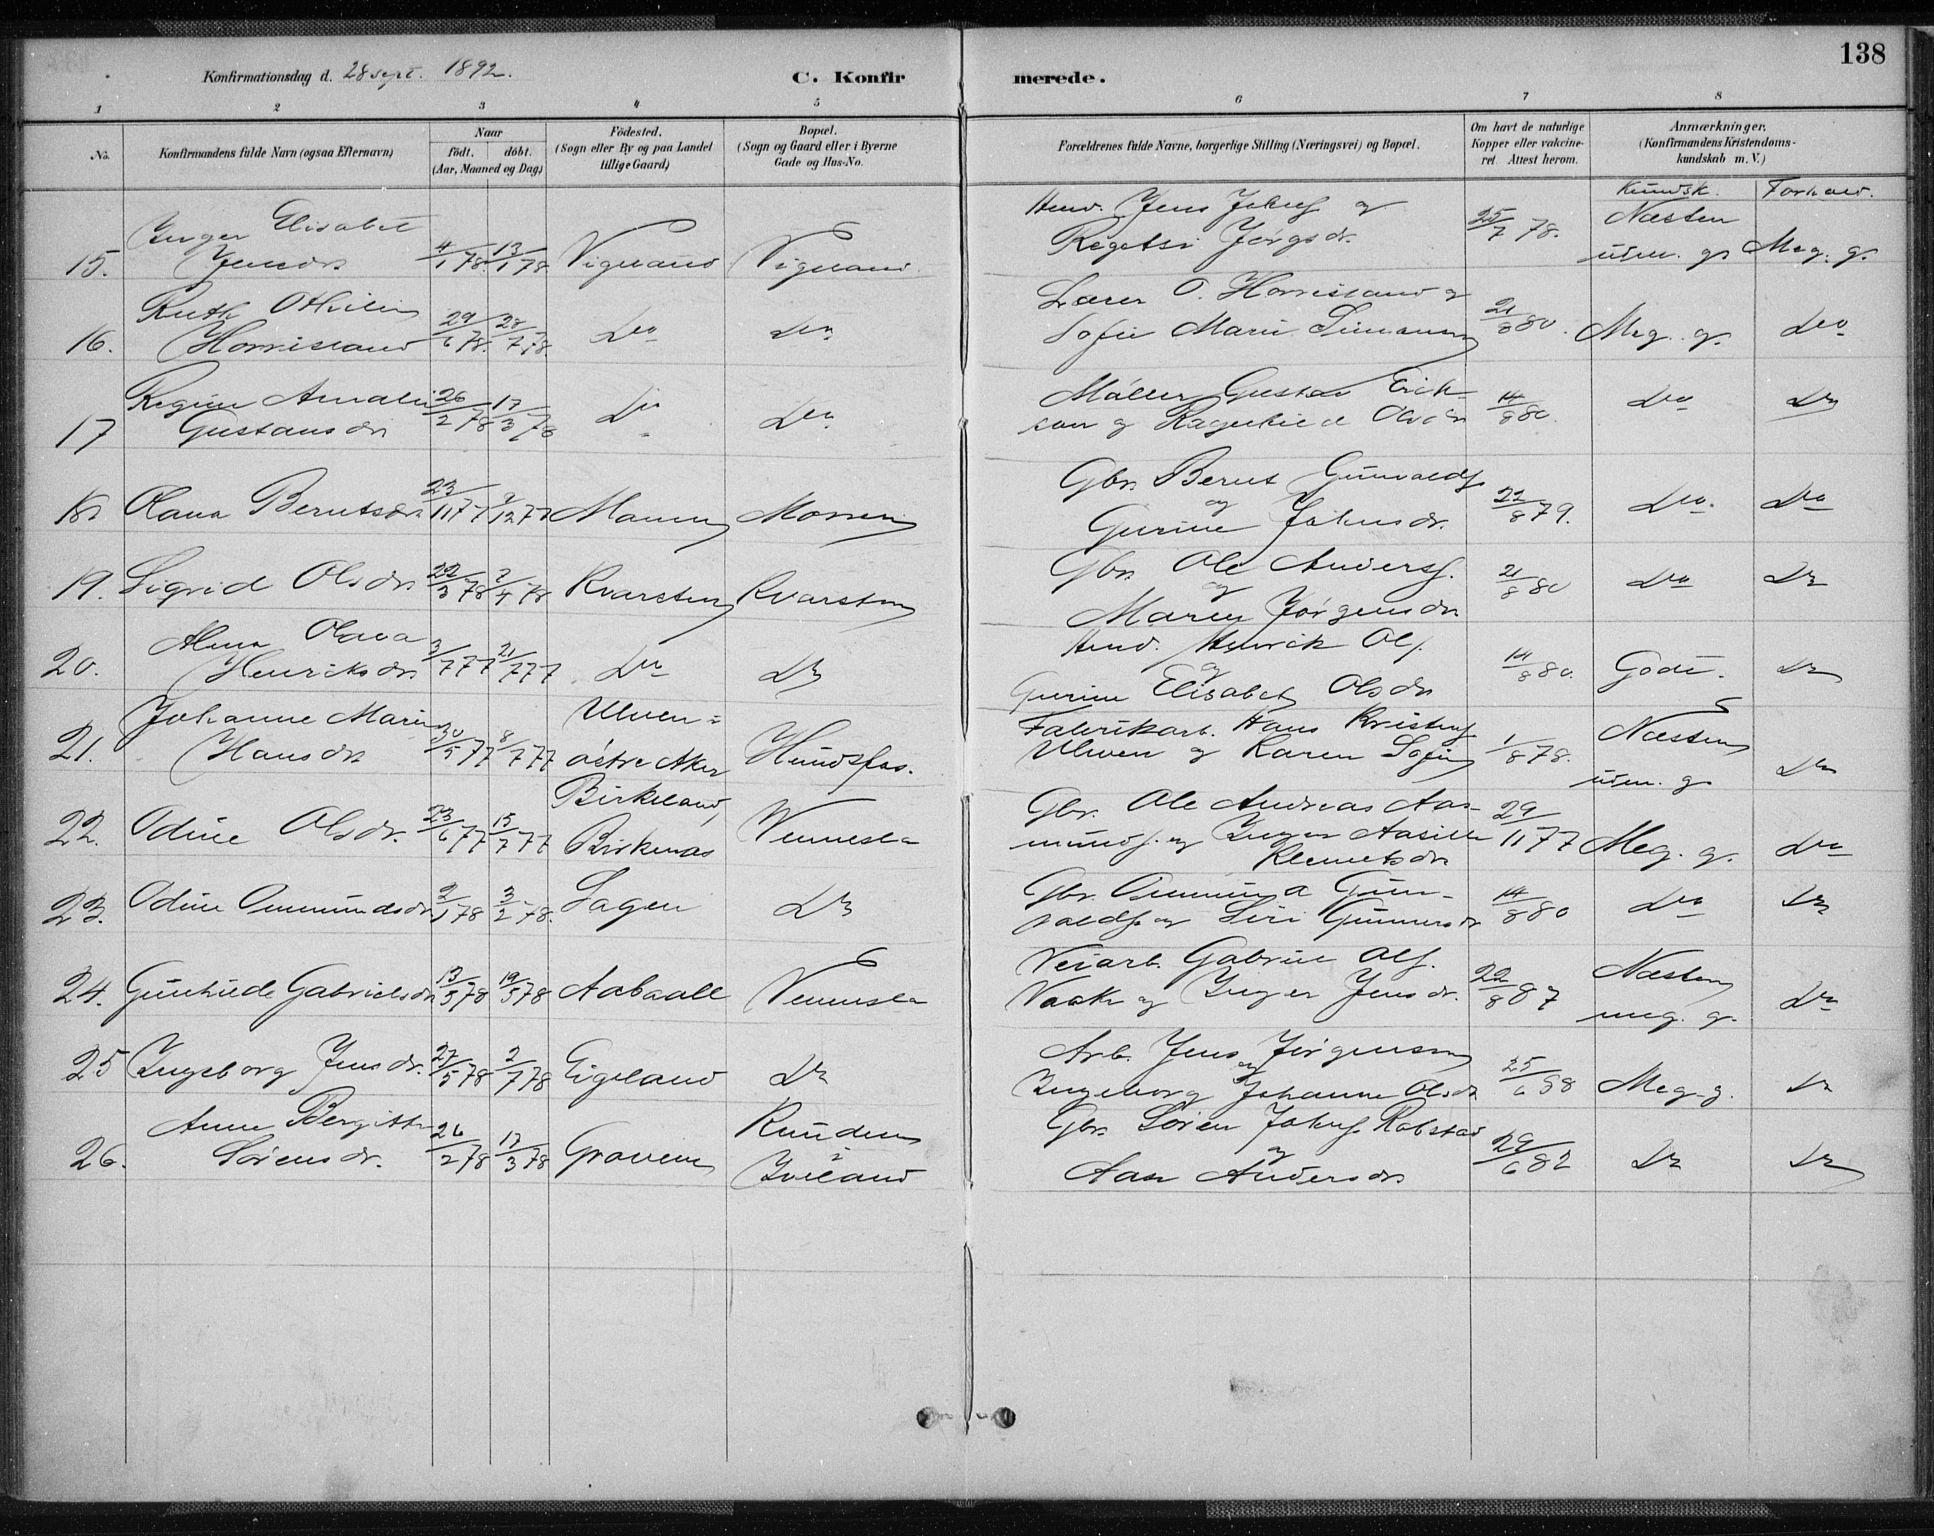 138
Konfirmationsdag d. 28 sept. 1892.
C. Konfirmerede.
1 2 3 4 5 6 7 8
No.
Konfirmandens fulde Navn (ogsaa Efternavn)
Naar
födt. döbt.
(Aar, Maaned og Dag)
Födested.
(Sogn eller By og paa Landet
tillige Gaard)
Bopæl.
(Sogn og Gaard eller i Byerne
Gade og Hus-No.
Forældrenes fulde Navne, borgerlige Stilling (Næringsvei) og Bopæl.
Om havt de naturlige
Kopper eller vakcineret. Attest herom.
Anmærkninger.
(Konfirmandens Kristendomskundskab m. V.)
Kundsk. Forhold.
15. Inger Elisabet
Jensdr. 4/1 78. 13/1 78 Vigeland Vigeland
Jens Jakobs. og
Jørgsdr. 25/7 78. Næsten
udm. g. Meg. g.
16. Ruth Othilie
Horrisland 29/6 78. 28/7 78 Do Do
Lærer O. Horrisland og
Sofie Marie 21/8 80. Meg. g. Do
17 Regine Amalie
Gustavsdr. 26/2 78 17/3 78 Do Do
Møller Gustav Erikson og Ragnhild Olsdr. 14/8 80. Do Do
18 Olava Berntsdr. 23/11 77 9/12 77
Gbr. Bernt Gunvalds.
og
Gurine Jakobsdr. 22/8 79. Do. Do
19. Sigrid Olsdr. 22/3 78 7/4 78 Kvarsten Kvarsten
Gbr. Ole Anders.
og
Maren Jörgensdr. 21/8 80 Do Do
20. Alma Olava
Henriksdr. 3/7 77 21/7 77 Do Do
Henrik Ols.
og
Gurine Elisabet Olsdr. 14/8 80. Gode. Do
21. Johanne Marie
Hansdr. 30/5 77 8/7 77 Ulven =
østre Aker Hundsfos.
Fabrikarb. Hans Kristens.
Ulven og Karen Sofie 1/8 78. Næsten
udm. g. Do
22. Odine Olsdr. 23/6 77 15/7 77 Birkeland,
Birkenes Vennesla
Gbr. Ole Andreas Aasmunds. og Inger Aasille
Klemetsdr. 29/11 77 Meg. g. Do
23. Odine Ommundsdr. 2/1 78 3/2 78. Sagen Do
Gbr. Ommund Gunvalds. og Siri Gunnersdr. 14/8 80 Do Do
24. Gunhilde Gabrielsdr. 13/5 78 19/5 78 Aabaall Vennesla
Veiarb. Gabriel Ols.
og Inger Jensdr. 22/8 87 Næsten
meg. g. Do
25 Ingeborg Jensdr. 27/5 78 2/7 78 Eigeland Do
Arb. Jens Jørgensen
og
Ingeborg Johanne Olsdr. 25/6 88 Meg. g. Do
26. Anne Bergitte
Sörensdr. 26/2 78 17/3 78 Graven
Iveland
Gbr. Sören Jakobs. Rabstad
og
Aase Andersdr. 29/6 82 Do Do